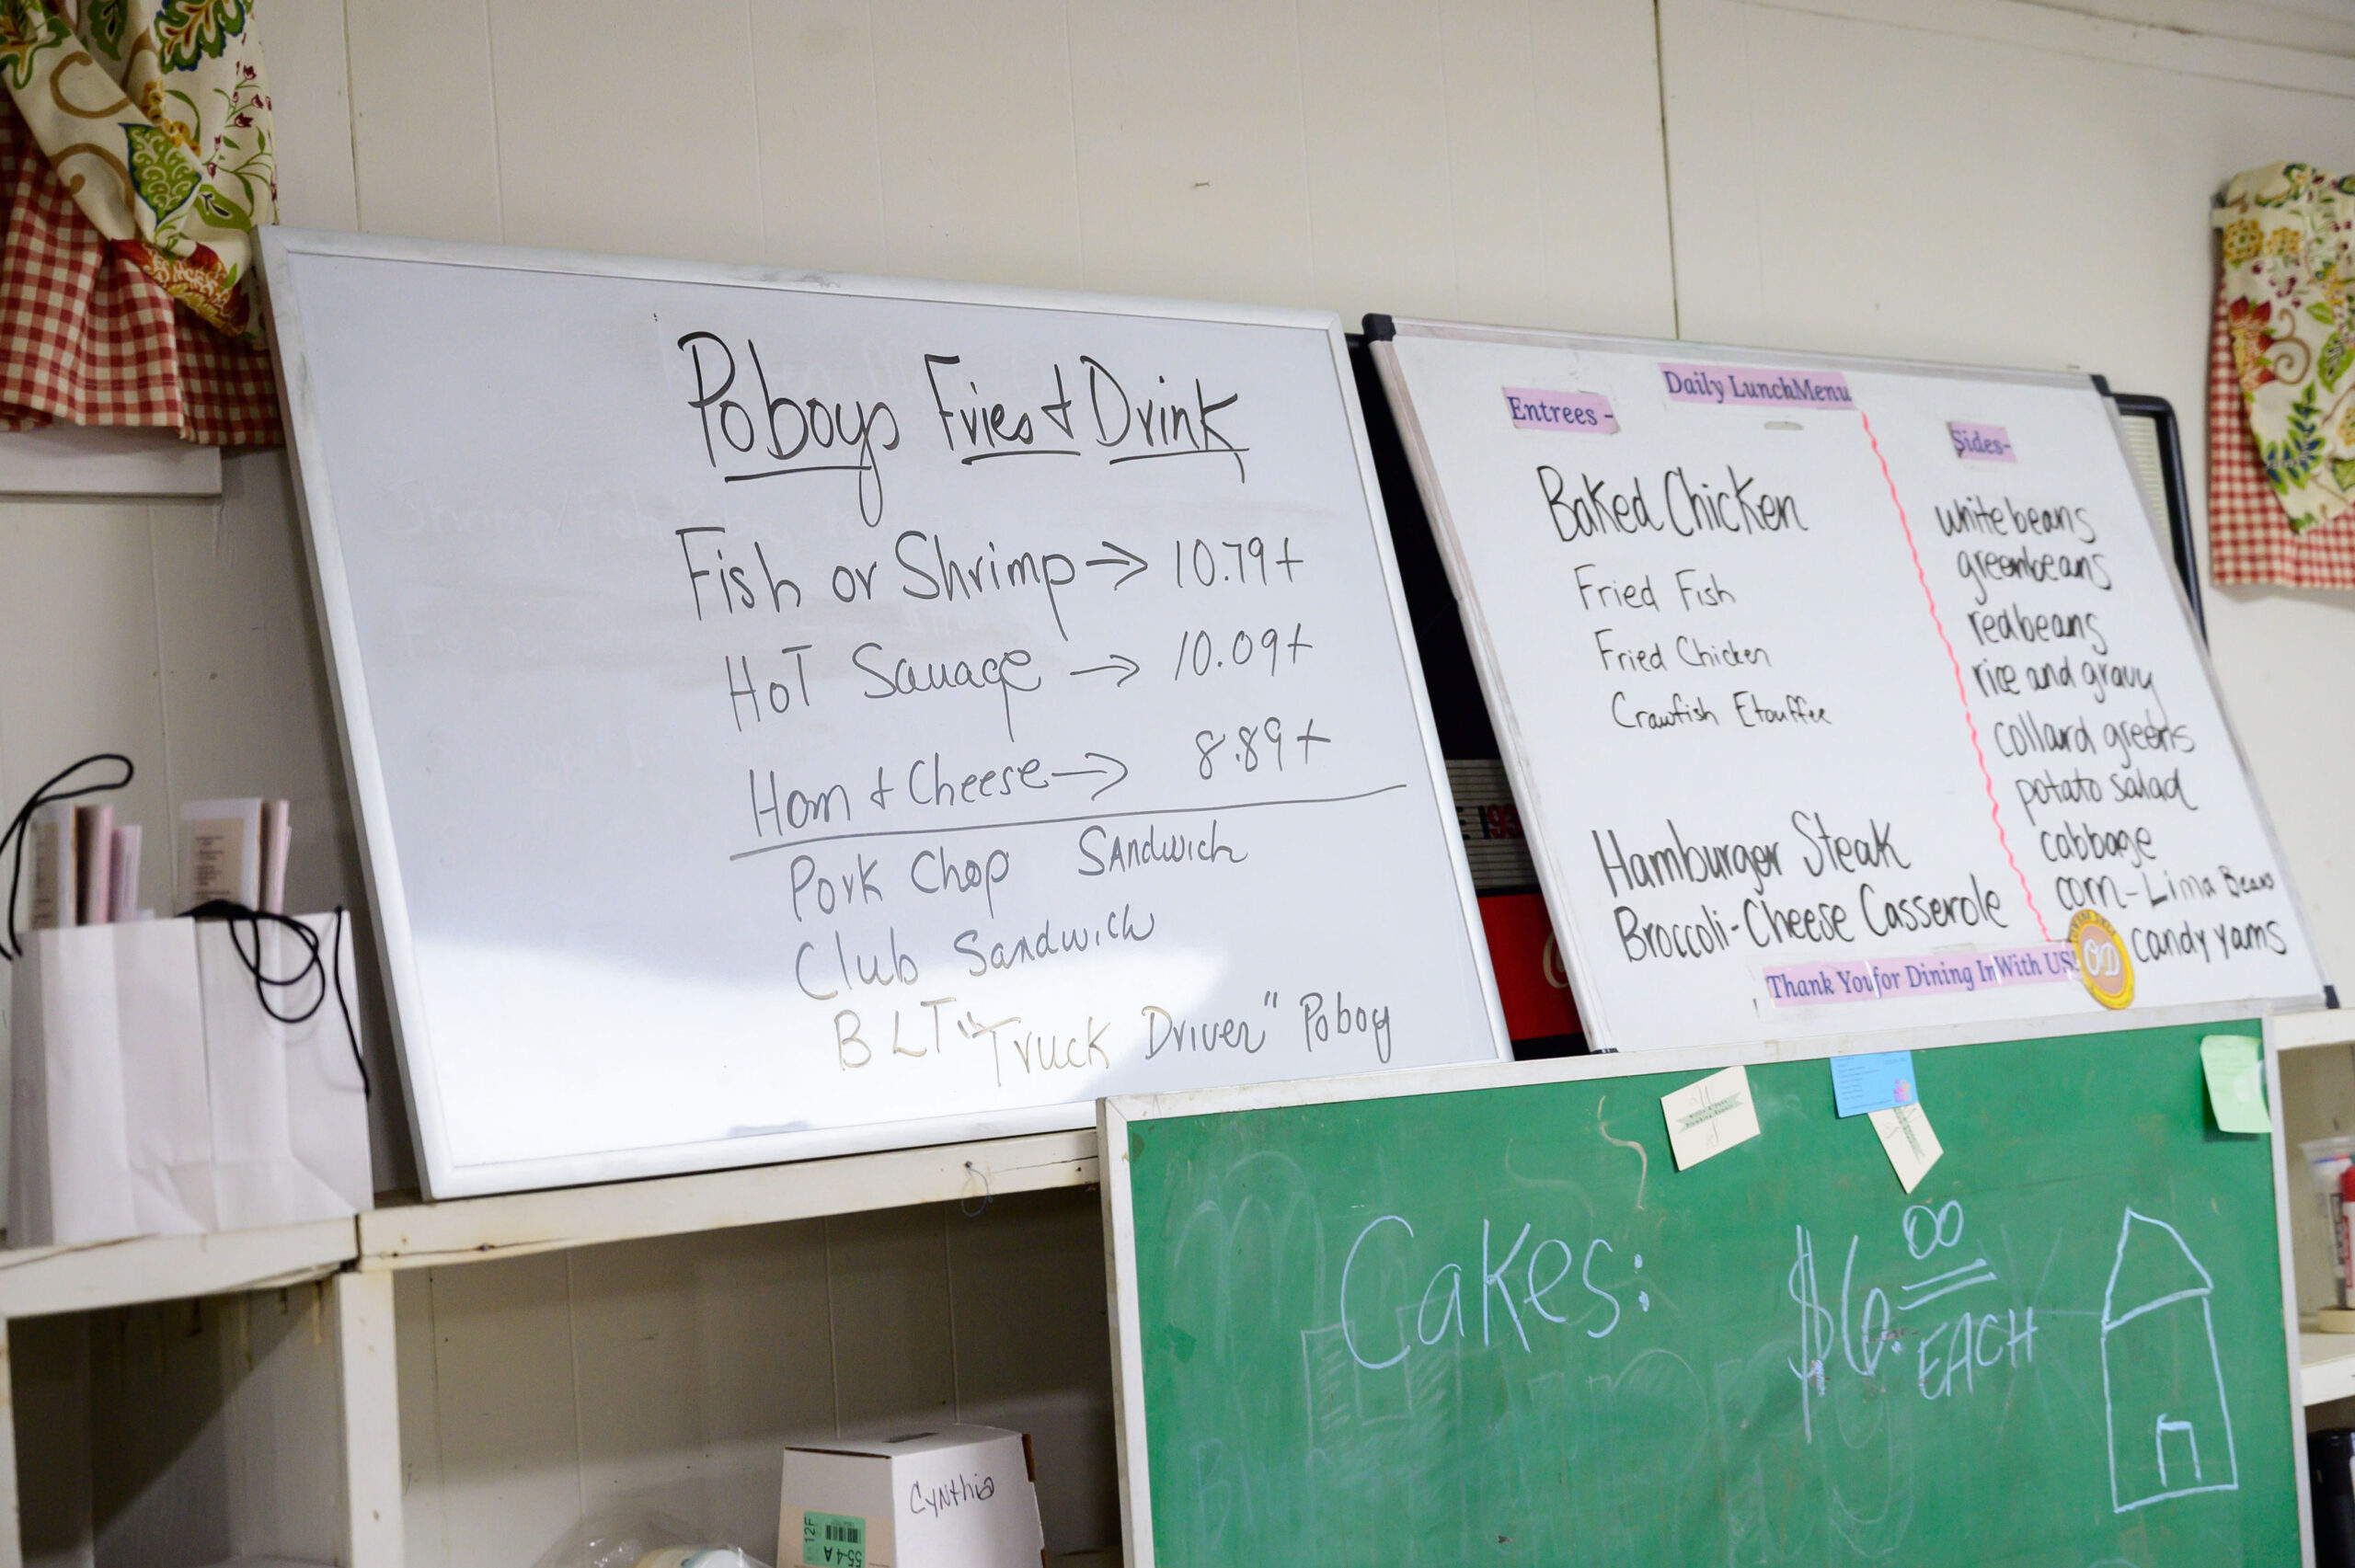 Poboys Fries + Drink
Fish or Shrimp → 10.79+
HoT Sauage → 10.09+
Ham + Cheese → 8.89+
Pork Chop SANdwich
Club Sandwich
BLT "Truck Driver" Poboy
Daily Lunch Menu
Entrees -
Baked Chicken
Fried Fish
Fried Chicken
Crawfish Etouffee
Hamburger Steak
Broccoli-Cheese Casserole
Sides-
white beans
greenbeans
redbeans
rice and gravy
collard greens
potato salad
cabbage
corn - Lima Beans
candy yams
OD
Thank You for Dining In With US!
Cakes: $6.00 EACH
Cynthia
12F
55-4 A